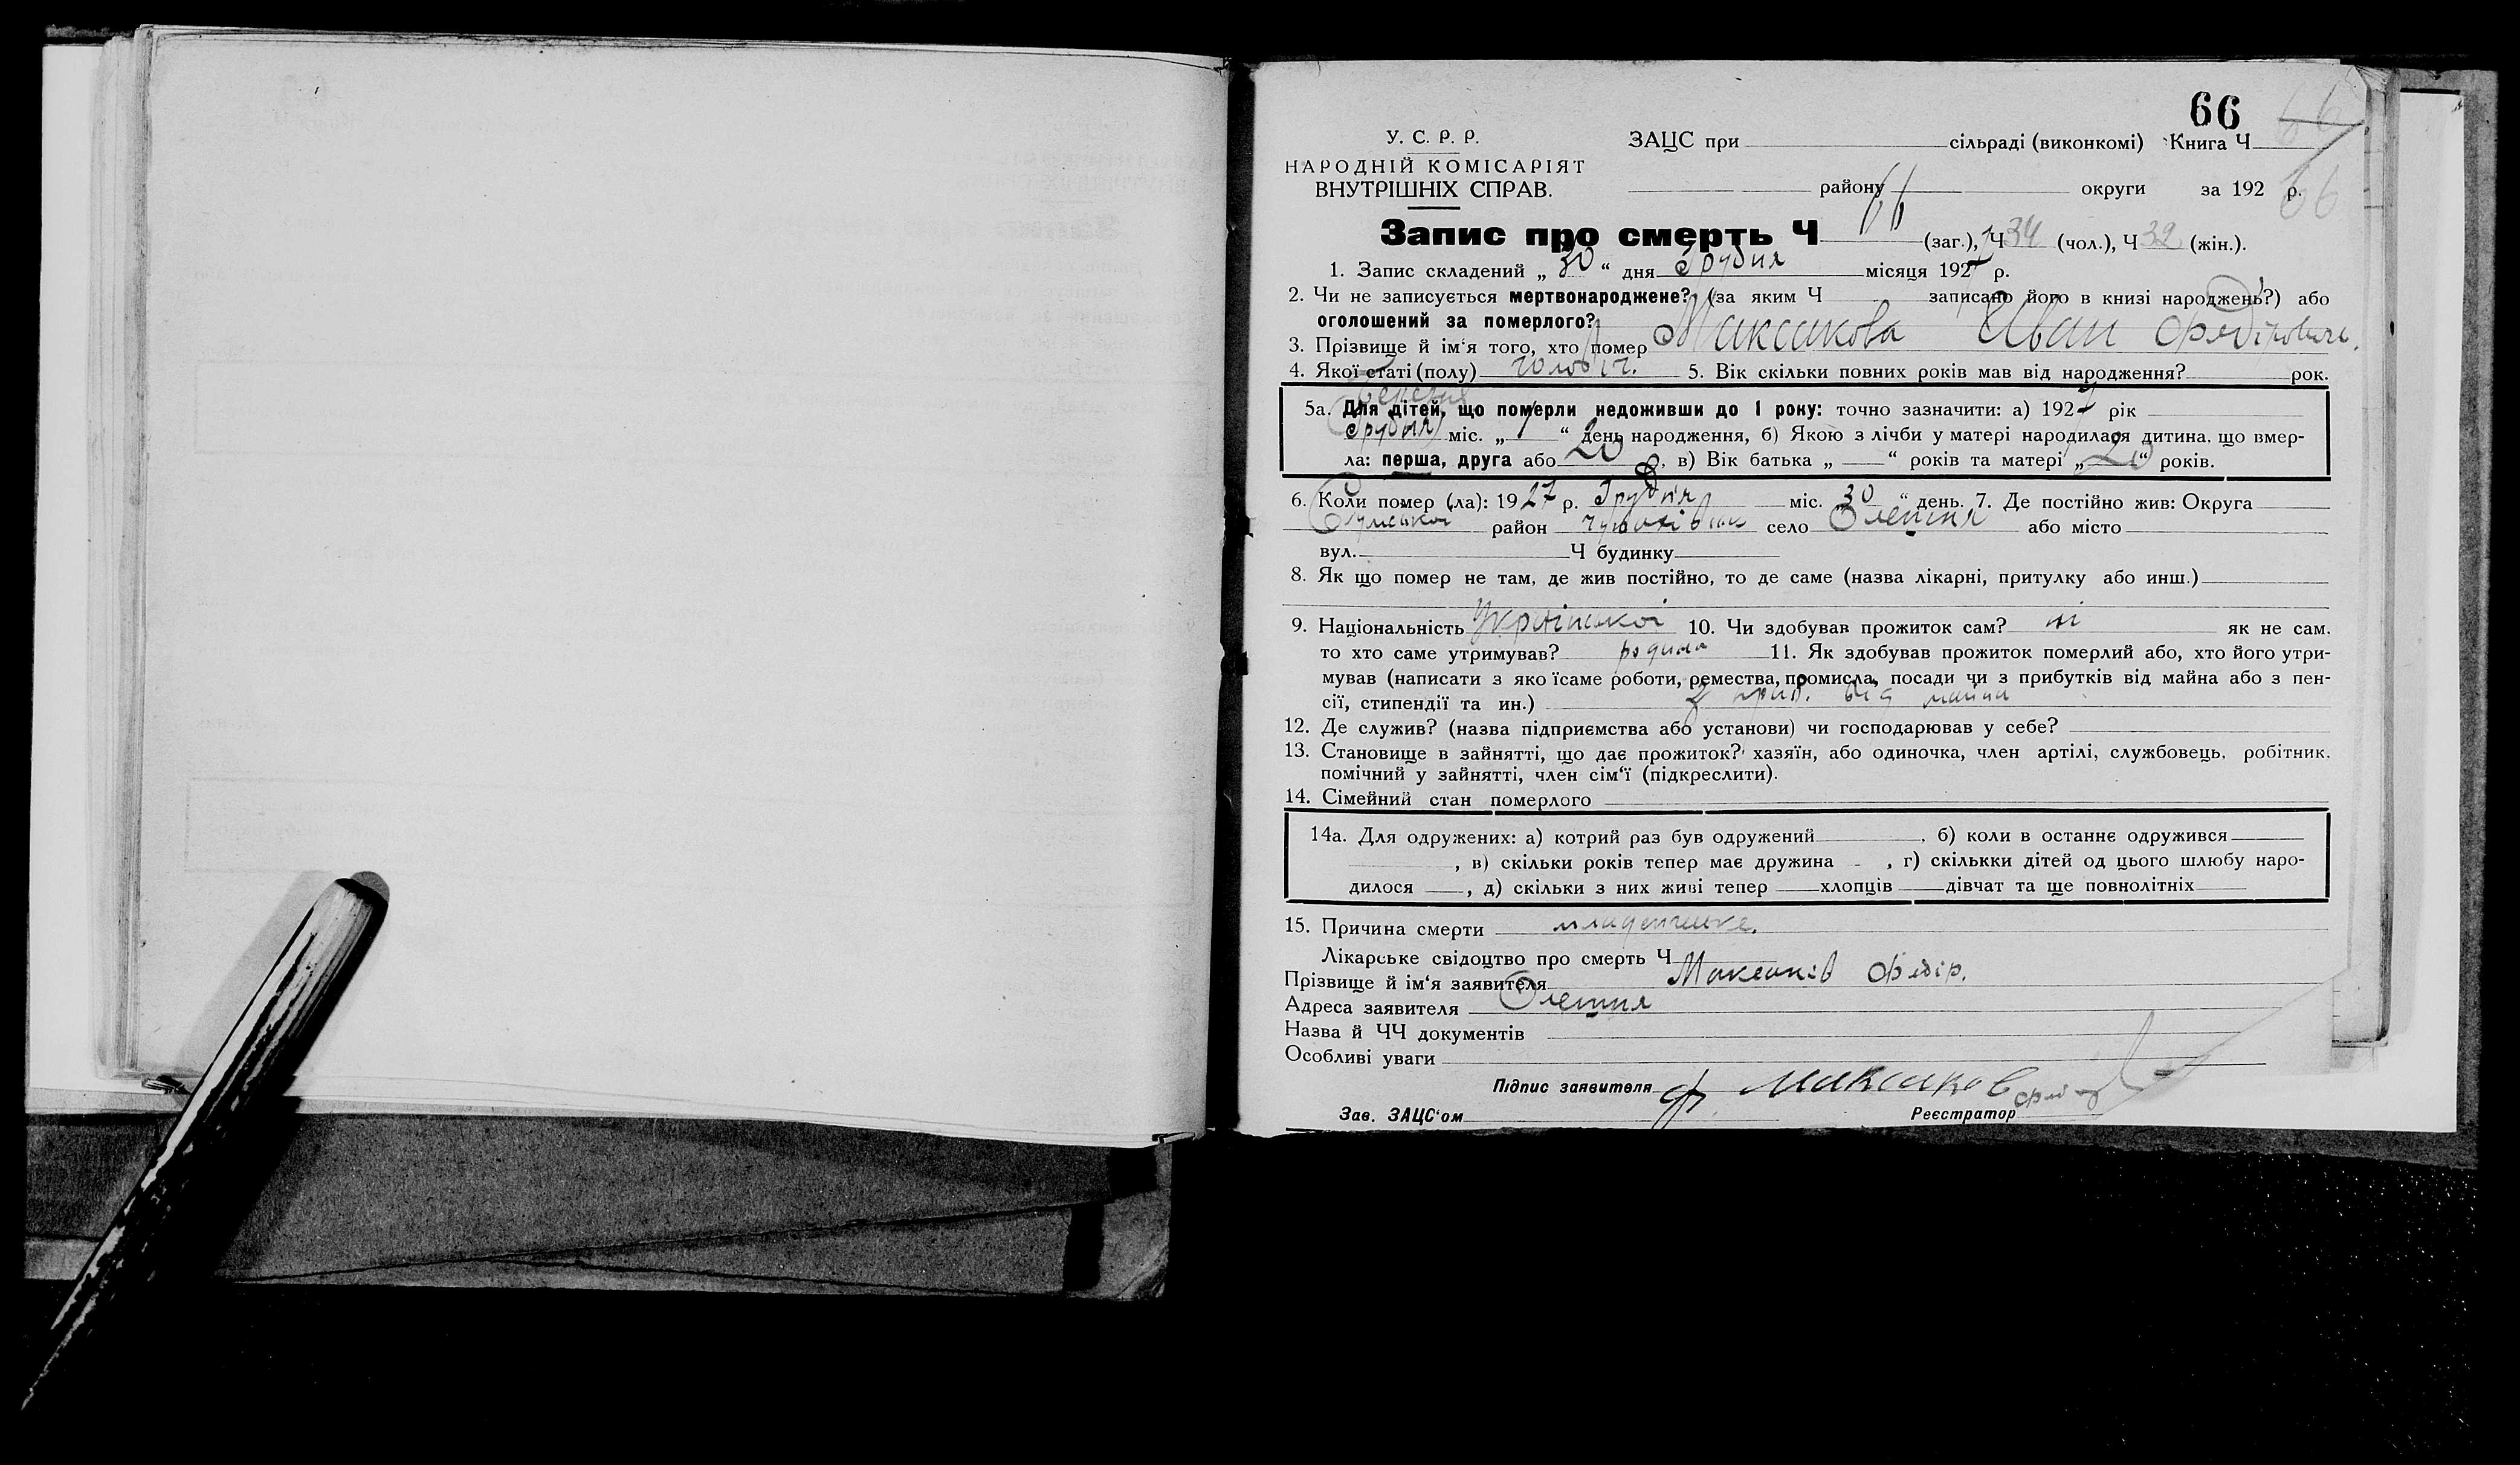 66 66
У. С. Р. Р. ЗАЦС при сільраді (виконкомі) Книга Ч
НАРОДНІЙ КОМІСАРІЯТ
ВНУТРІШНІХ СПРАВ. району округи за 192 р.
66
Запис про смерть Ч 66 (заг.), Ч 34 (чол.), Ч 32 (жін.).
1. Запис складений „ 30 “ дня Грудня місяця 1927 р.
2. Чи не записується мертвонароджене? (за яким Ч записано його в книзі народжень?) або
оголошений за померлого?
3. Прізвище й ім‘я того, хто помер Максакова Иван Федірович.
4. Якої статі (полу) чоловіч. 5. Вік скільки повних років мав від народження? рок.
5а. Для дітей, що померли недоживши до 1 року: точно зазначити: а) 1927 рік
Грудня міс. „ “ день народження, б) Якою з лічби у матері народилася дитина, що вмер-
ла: перша, друга або , в) Вік батька „ 20 “ років та матері „ 20 “ років.
6. Коли помер (ла): 1927 р. Грудня міс. 30 “ день. 7. Де постійно жив: Округа
Сумської район село Олешня або місто
вул. Ч будинку
8. Як що помер не там, де жив постійно, то де саме (назва лікарні, притулку або инш.)
9. Національність Української 10. Чи здобував прожиток сам? ні як не сам,
то хто саме утримував? родина 11. Як здобував прожиток померлий або, хто його утри-
мував (написати з яко їсаме роботи, ремества, промисла, посади чи з прибутків від майна або з пен-
сії, стипендії та ин.) з приб. від майна
12. Де служив? (назва підприємства або установи) чи господарював у себе?
13. Становище в зайнятті, що дає прожиток? хазяїн, або одиночка, член артілі, службовець, робітник,
помічний у зайнятті, член сім‘ї (підкреслити).
14. Сімейний стан померлого
14а. Для одружених: а) котрий раз був одружений , б) коли в останнє одружився
, в) скільки років тепер має дружина , г) скількки дітей од цього шлюбу наро-
дилося , д) скільки з них живі тепер хлопців дівчат та ще повнолітніх
15. Причина смерти
Лікарське свідоцтво про смерть Ч
Прізвище й ім‘я заявителя Максаків Федір.
Адреса заявителя Олешня
Назва й ЧЧ документів
Особливі уваги
Підпис заявителя Ф Максаков
Зав. ЗАЦС‘ом Реєстратор